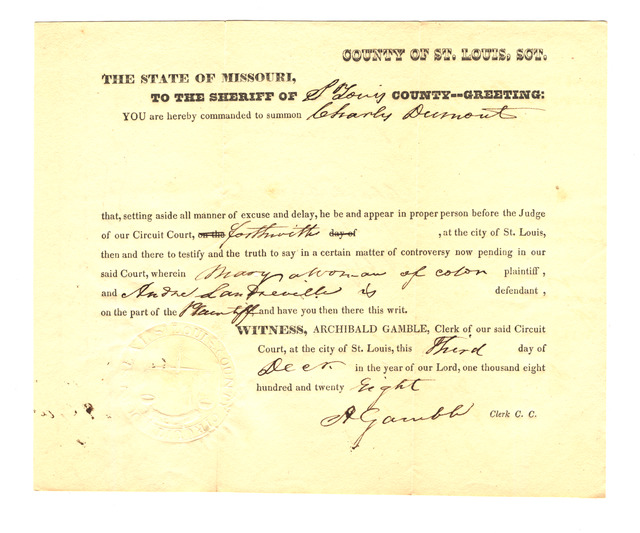 COUNTY OF ST. LOUIS, SCT.
THE STATE OF MISSOURI,
TO THE SHERIFF OF St Louis COUNTY--GREETING:
YOU are hereby commanded to summon Charles Dumont
that, setting aside all manner of excuse and delay, he be and appear in proper person before the Judge
of our Circuit Court, on the forthwith day of , at the city of St. Louis,
then and there to testify and the truth to say in a certain matter of controversy now pending in our
said Court, wherein Mary a Woman of color plaintiff,
and Andre Landreville is defendant,
on the part of the Plaintiff and have you then there this writ.
WITNESS, ARCHIBALD GAMBLE, Clerk of our said Circuit
Court, at the city of St. Louis, this Third day of
Decr. in the year of our Lord, one thousand eight
hundred and twenty Eight
A Gamble Clerk C. C.